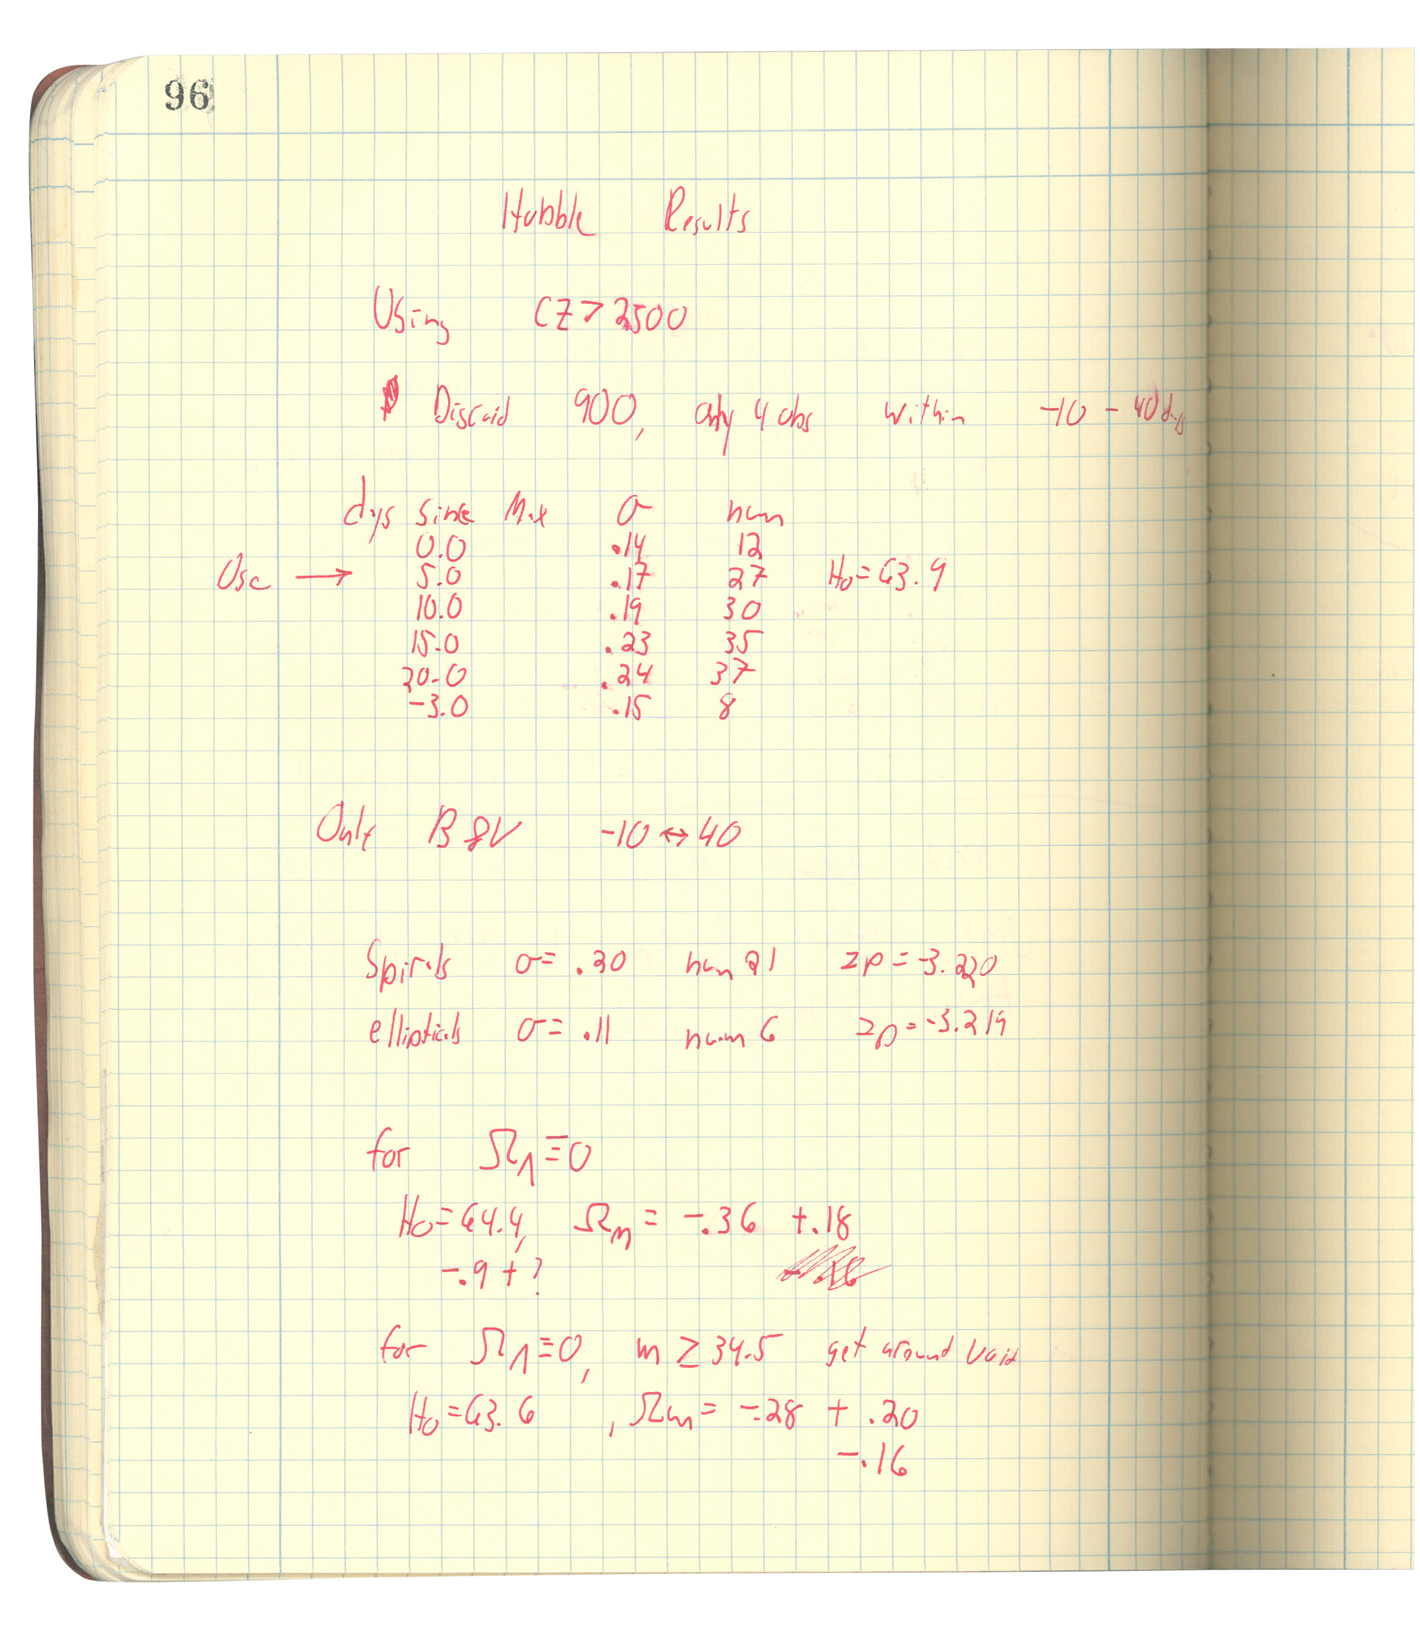 96
Hubble Results
Using CZ > 2500
Discard 900, only 4 obs within -10 - 40 dys
dys since Max σ num
0.0 .14 12
Use → 5.0 .17 27 H₀=63.9
10.0 .19 30
15.0 .23 35
20.0 .24 37
-3.0 .15 8
Only B & V -10 ↔ 40
Spirals σ= .20 num 21 zp = -3.220
ellipticals σ= .11 num 6 zp = -3.219
for Ω_Λ≡0
H₀=64.4, Ω_m = -.36 +.18
-.9 + ?
for Ω_Λ≡0, m ≥ 34.5 get around Void
H₀=63.6 , Ω_m= -.28 + .20
-.16